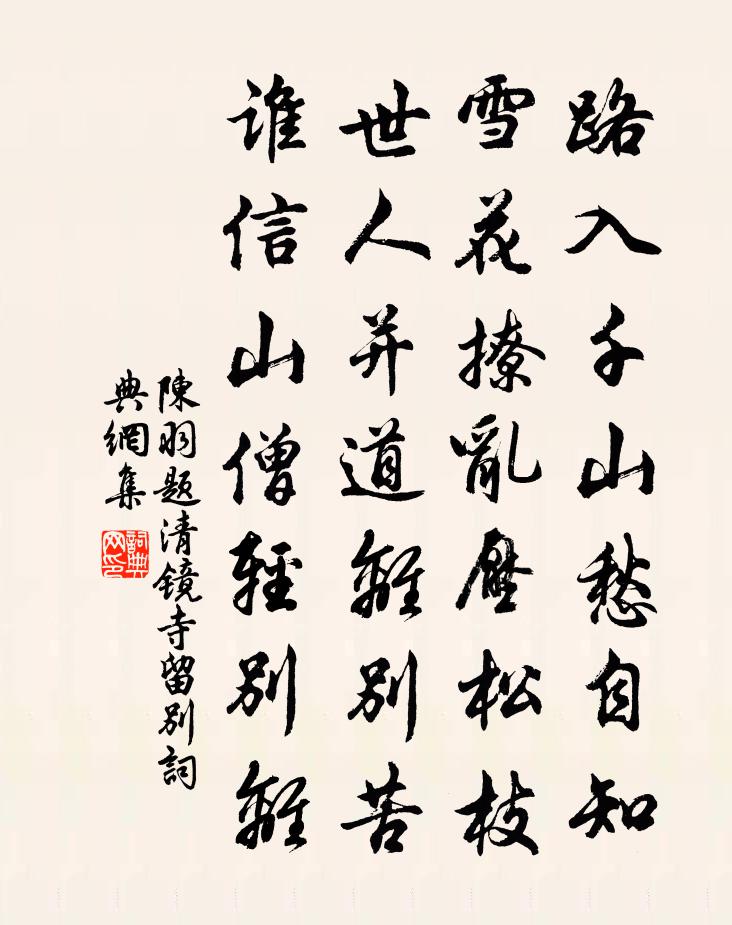 路入千山愁自知
雪花撩亂壓松枝
世人并道離別苦
谁信山僧輕別離
陳羽题清镜寺留別詞
典網集
詞典
网印